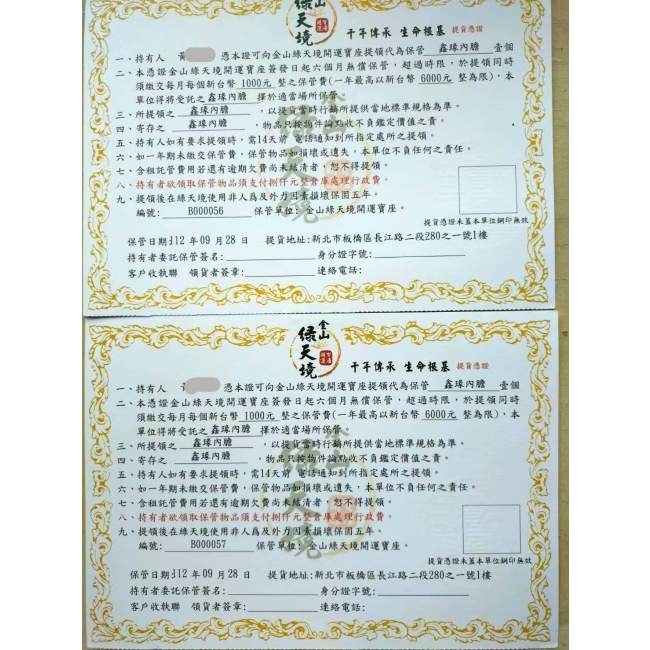 金山
綠天境
千年傳承 生命根基 提貨憑證
一、持有人 黃 憑本證可向金山綠天境開運寶座提領代為保管 鑫瑑內膽 壹個
二、本憑證金山綠天境開運寶座簽發日起六個月無償保管，超過時限，於提領同時
須繳交每月每個新台幣 1000元 整之保管費(一年最高以新台幣 6000元 整為限)，本
單位得將受託之 鑫瑑內膽 擇於適當場所保管。
三、所提領之 鑫瑑內膽 ，以提貨當時行鋪所提供當地標準規格為準。
四、寄存之 鑫瑑內膽 ，物品只按物件論點收不負鑑定價值之責。
五、持有人如有要求提領時，需14天前 電話通知到所指定處所之提領。
六、如一年期未繳交保管費，保管物品如損壞或遺失，本單位不負任何之責任。
七、含租託管費用若還有逾期欠費尚未結清者，恕不得提領。
八、持有者欲領取保管物品須支付捌仟元整倉庫處理行政費。
九、提領後在綠天境使用非人為及外力因素損壞保固五年。
編號: B000056 保管單位: 金山綠天境開運寶座。
提貨憑證未蓋本單位鋼印無效
保管日期:112 年 09 月 28 日 提貨地址:新北市板橋區長江路二段280之一號1樓
持有者委託保管簽名: 身分證字號:
客戶收執聯 領貨者簽章: 連絡電話:
金山
綠天境
千年傳承 生命根基 提貨憑證
一、持有人 憑本證可向金山綠天境開運寶座提領代為保管 鑫瑑內膽 壹個
二、本憑證金山綠天境開運寶座簽發日起六個月無償保管，超過時限，於提領同時
須繳交每月每個新台幣 1000元 整之保管費(一年最高以新台幣 6000元 整為限)，本
單位得將受託之 鑫瑑內膽 擇於適當場所保管。
三、所提領之 鑫瑑內膽 ，以提貨當時行鋪所提供當地標準規格為準。
四、寄存之 鑫瑑內膽 ，物品只按物件論點收不負鑑定價值之責。
五、持有人如有要求提領時，需14天前 電話通知到所指定處所之提領。
六、如一年期未繳交保管費，保管物品如損壞或遺失，本單位不負任何之責任。
七、含租託管費用若還有逾期欠費尚未結清者，恕不得提領。
八、持有者欲領取保管物品須支付捌仟元整倉庫處理行政費。
九、提領後在綠天境使用非人為及外力因素損壞保固五年。
編號: B000057 保管單位: 金山綠天境開運寶座。
提貨憑證未蓋本單位鋼印無效
保管日期:112 年 09 月 28 日 提貨地址:新北市板橋區長江路二段280之一號1樓
持有者委託保管簽名: 身分證字號:
客戶收執聯 領貨者簽章: 連絡電話: